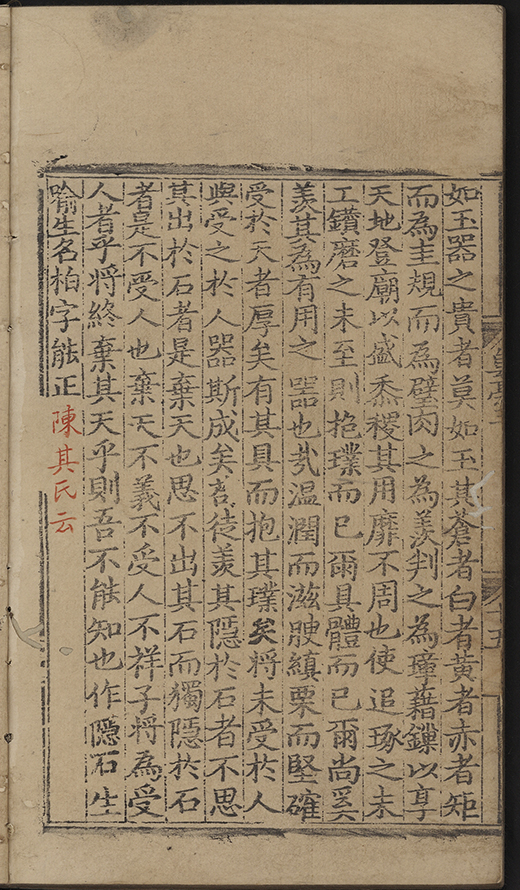 如玉器之貴者莫如玉其蒼者白者黃者赤者矩
而為圭規而為璧肉之為羨判之為璋藉鏁以享
天地登廟以盛黍稷其用靡不周也使追琢之未
工鑽磨之未至則抱璞而已爾具體而已爾尚奚
羨其為有用之器也㢤温潤而滋腴縝栗而堅確
受於天者厚矣有其具而抱其璞矣將未受於人
與受之於人器斯成矣吾徒羨其隠於石者不思
其出於石者是棄天也思不出其石而獨隠於石
者是不受人也棄天不義不受人不祥子將為受
人者乎將終棄其天乎則吾不能知也作隠石生
喻生名柏字能正
陳其氏云
十五